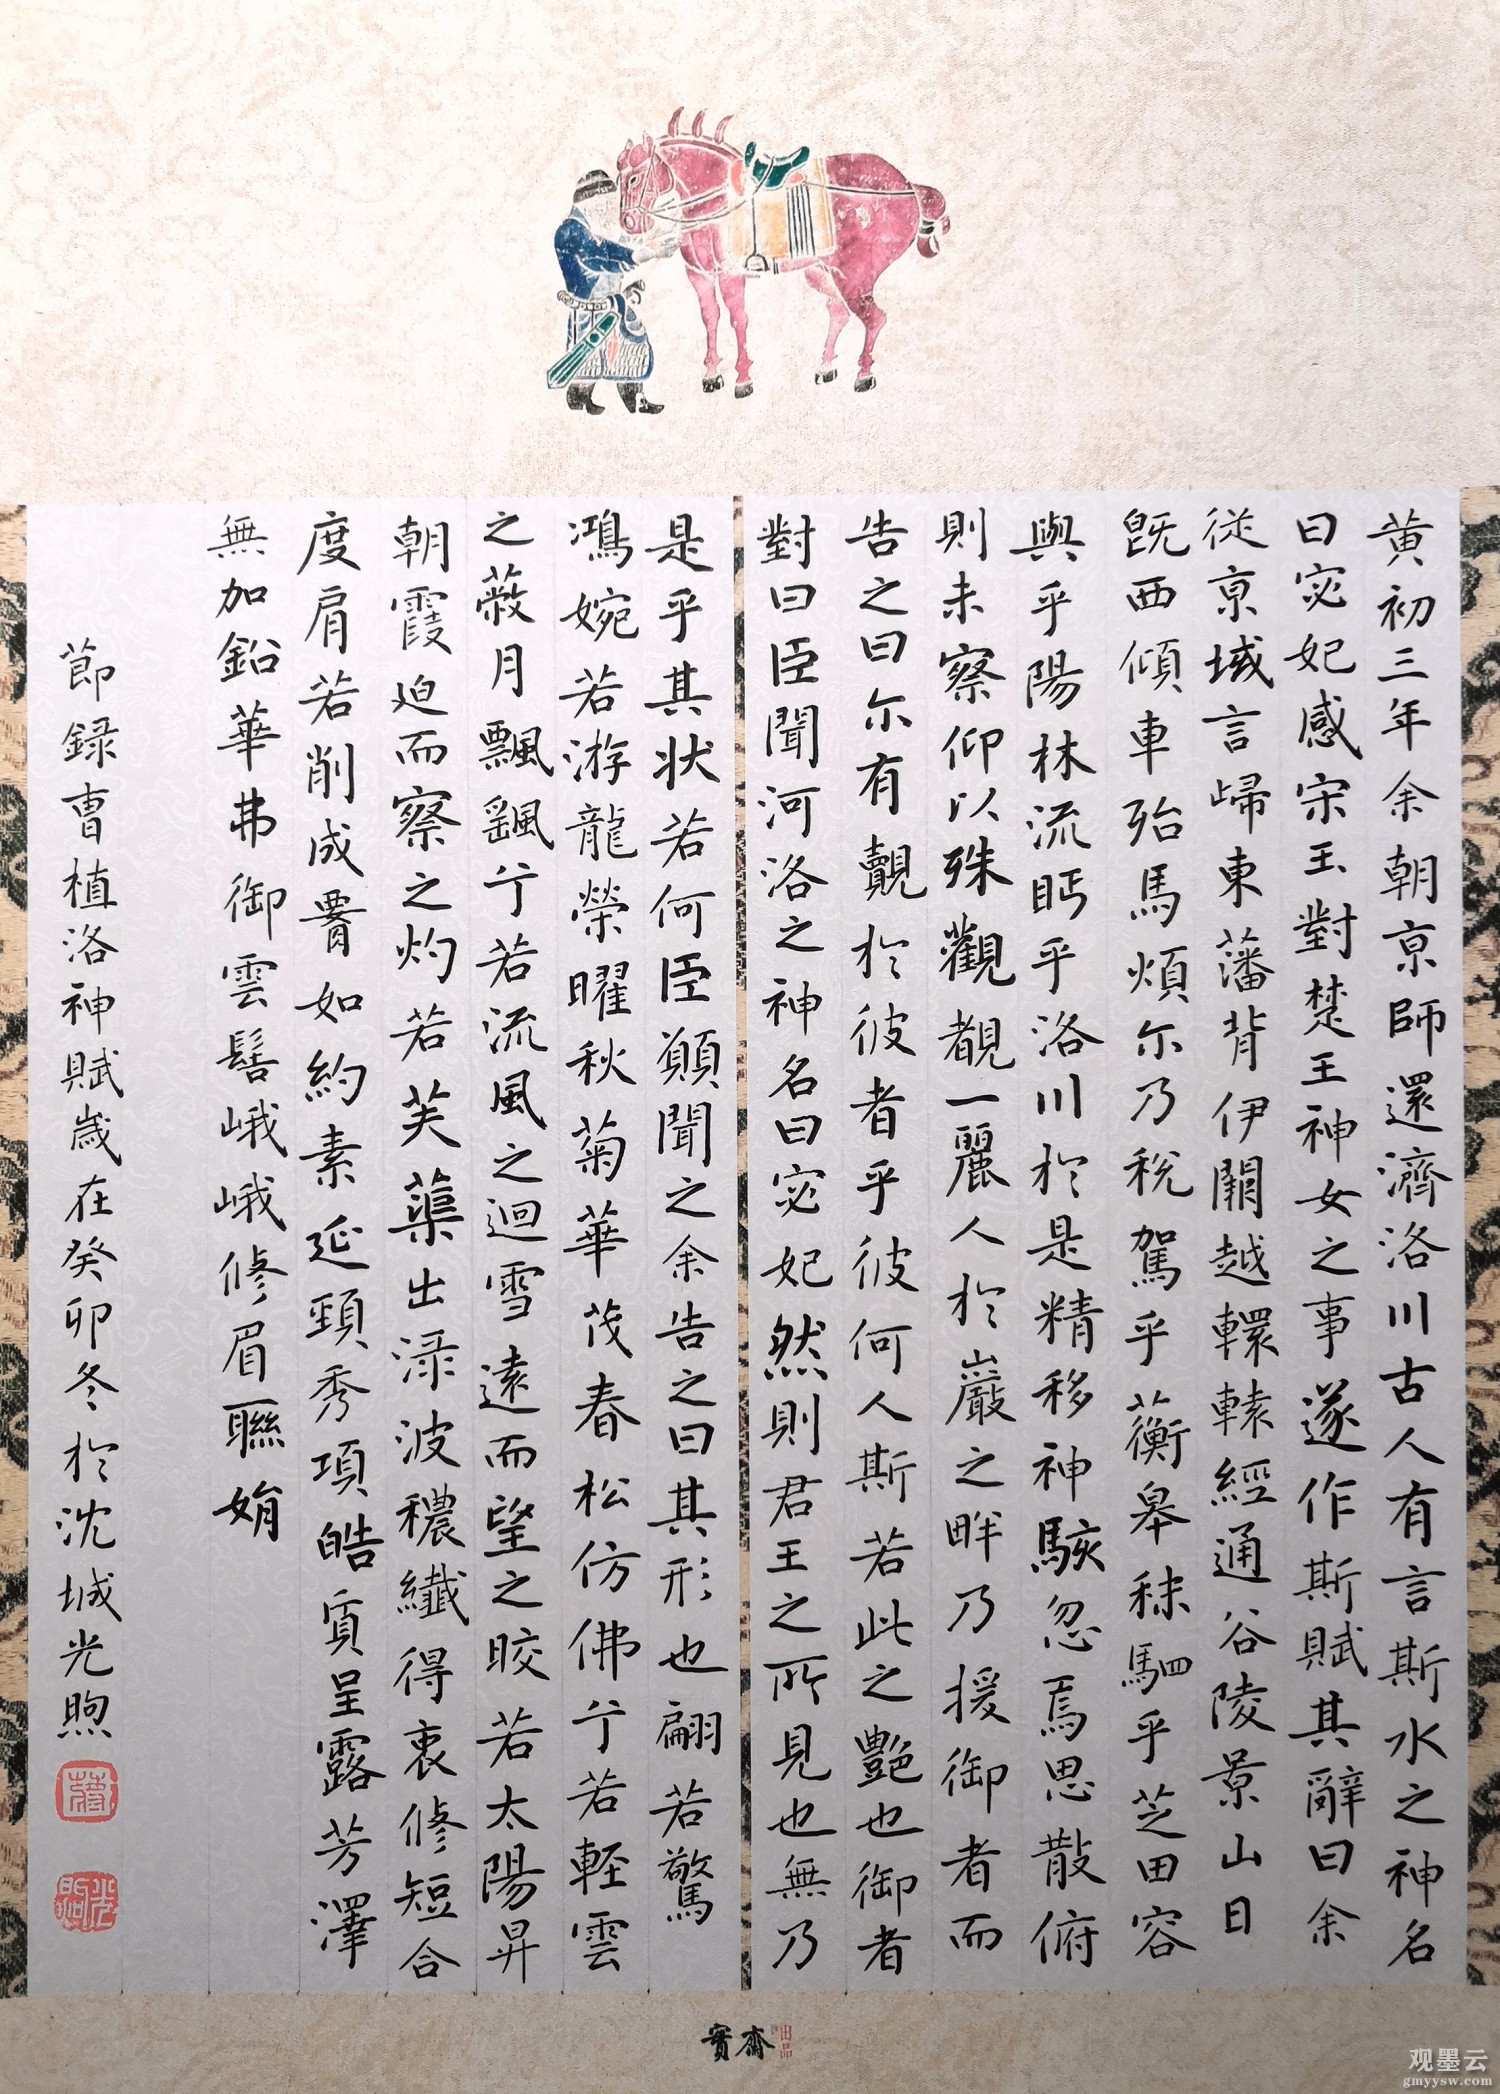 黄初三年余朝京師還濟洛川古人有言斯水之神名
曰宓妃感宋玉對楚王神女之事遂作斯賦其辭曰余
從京域言歸東藩背伊闕越轘轅經通谷陵景山日
既西傾車殆馬煩尔乃稅駕乎蘅皋秣駟乎芝田容
與乎陽林流眄乎洛川於是精移神駭忽焉思散俯
則未察仰以殊觀覩一麗人於巖之畔乃援御者而
告之曰尔有覿於彼者乎彼何人斯若此之艷也御者
對曰臣聞河洛之神名曰宓妃然則君王之所見也無乃
是乎其状若何臣願聞之余告之曰其形也翩若驚
鴻婉若游龍榮曜秋菊華茂春松仿佛兮若輕雲
之蔽月飄颻兮若流風之迴雪遠而望之皎若太陽昇
朝霞迫而察之灼若芙蕖出渌波穠纖得衷修短合
度肩若削成霄如約素延頸秀項皓質呈露芳澤
無加鉛華弗御雲髻峨峨修眉聯娟
節録曹植洛神賦歲在癸卯冬於沈城光煦
寶齋
出品
观墨云
gmyysw.com